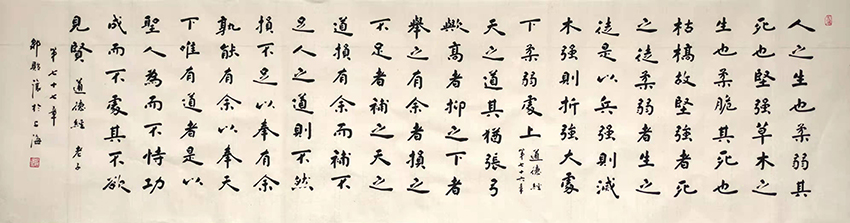 人之生也柔弱其
死也堅强草木之
生也柔脆其死也
枯槁故堅强者死
之徒柔弱者生之
徒是以兵强則滅
木强則折強大處
下柔弱處上
道德經
第七十六章
天之道其猶張弓
歟高者抑之下者
舉之有余者損之
不足者補之天之
道損有余而補不
足人之道則不然
損不足以奉有余
孰能有余以奉天
下唯有道者是以
聖人為而不恃功
成而不處其不欲
見賢 道德經 老子
第七十七章
於上海